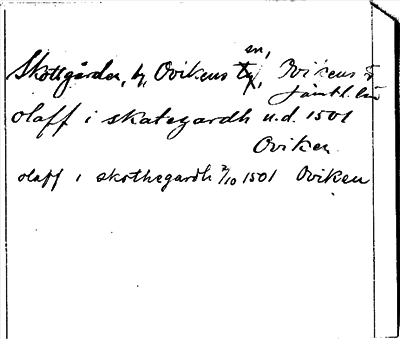 Skottgården, by, Ovikens sn, Ovikens t
Jämtl. län
olaff i skategardh u.d. 1501
Oviken
olaff i skothegardh 2/10 1501 Oviken